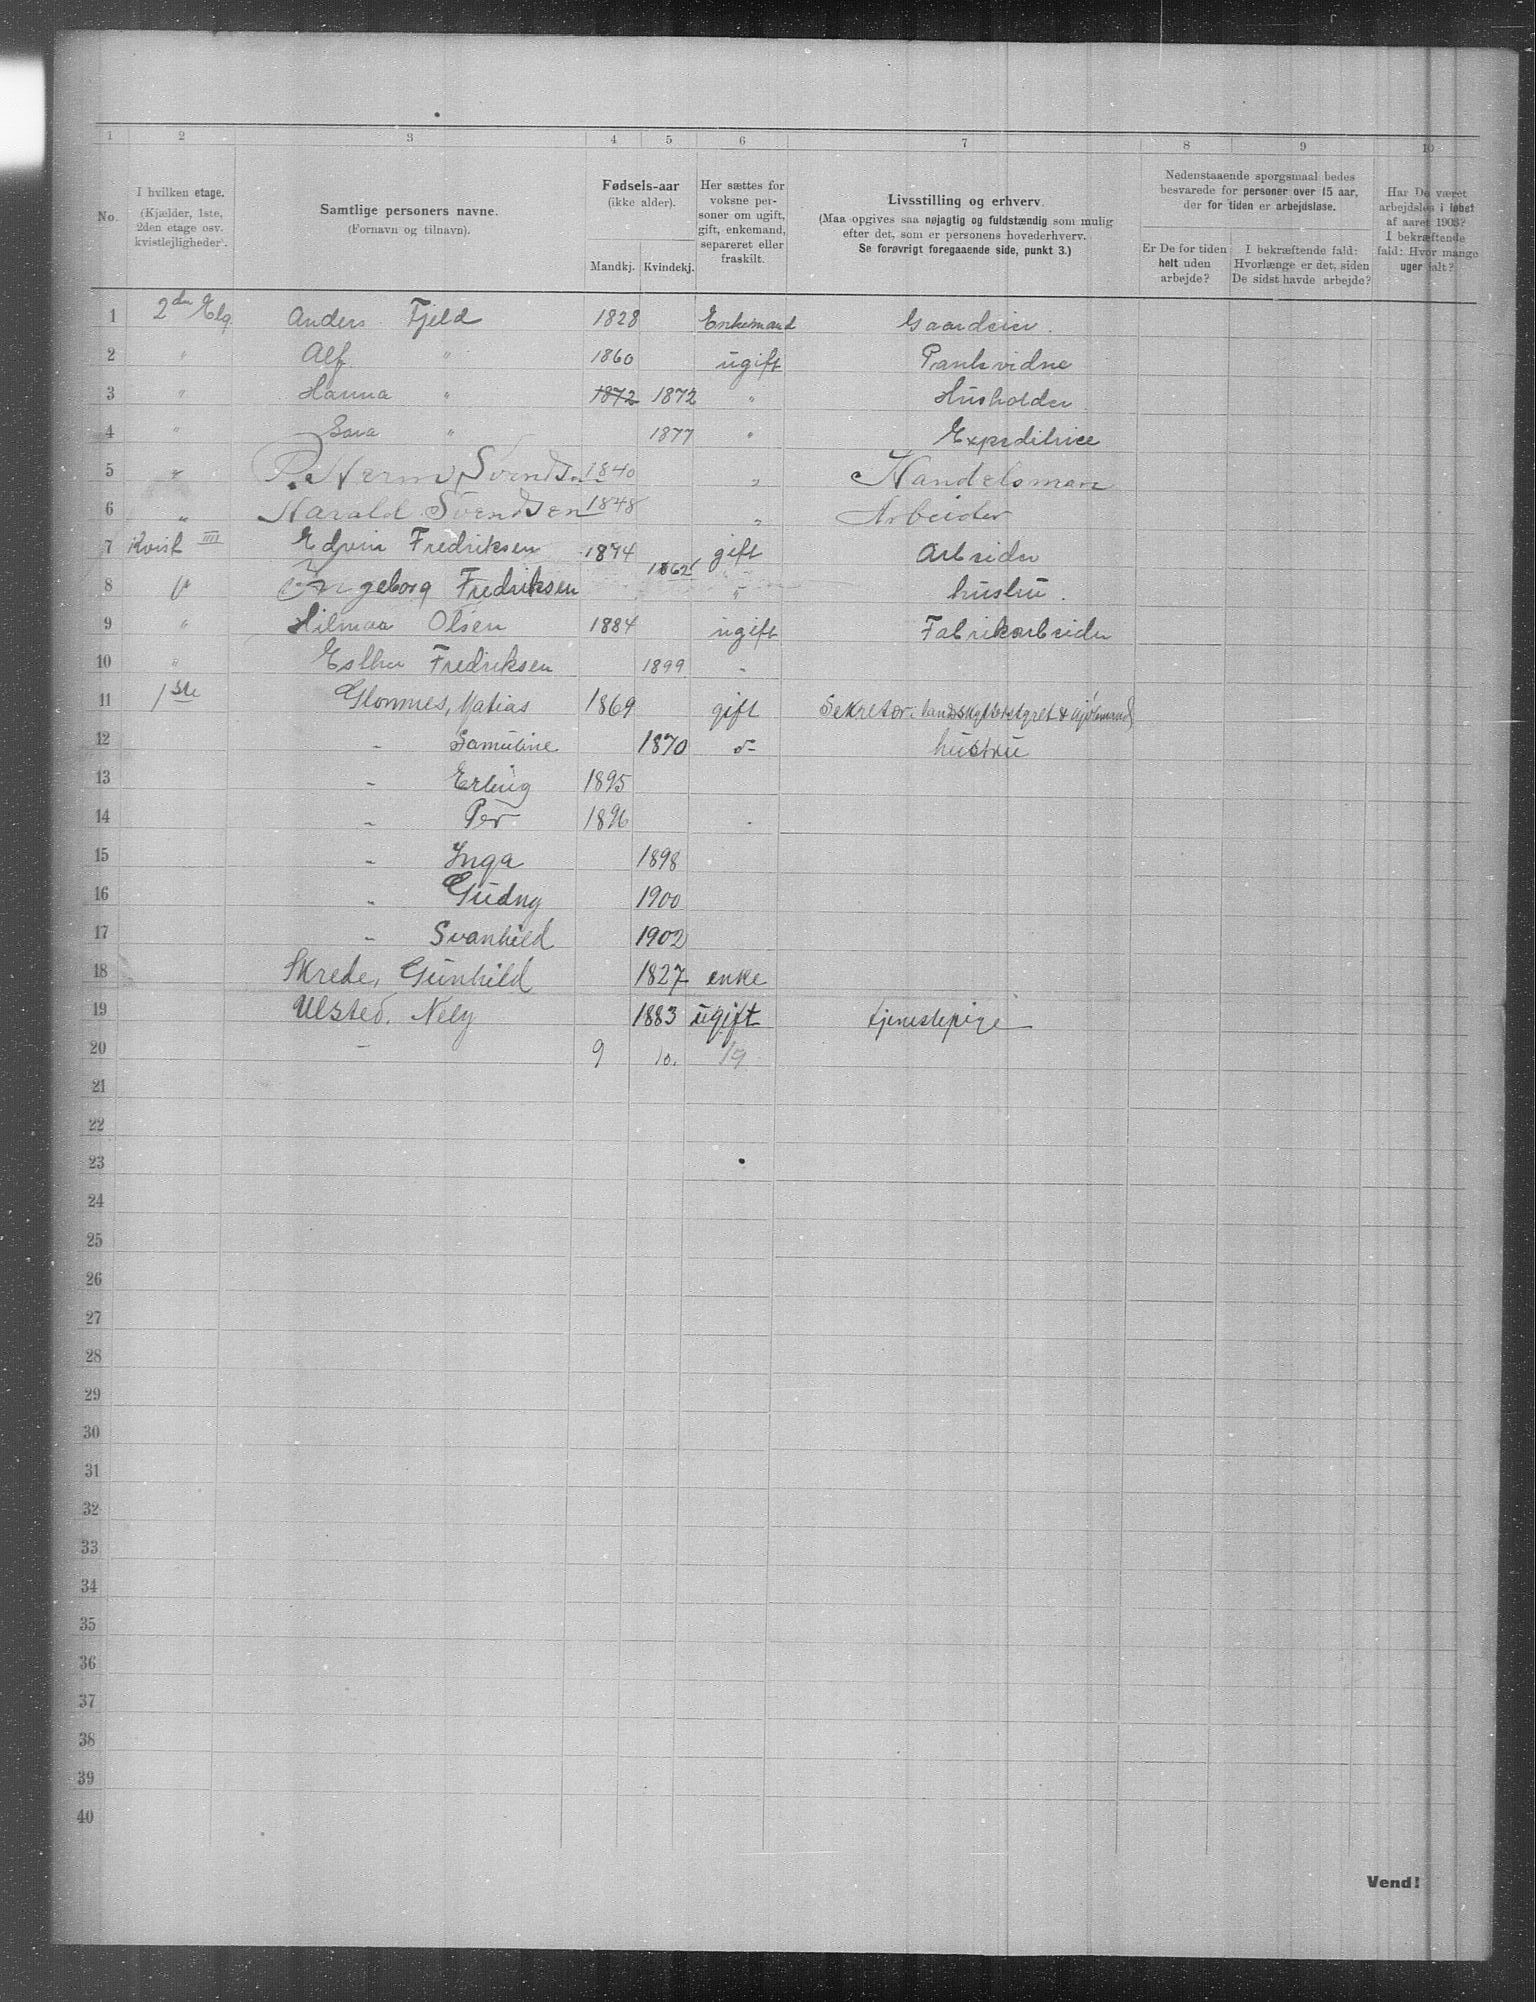 1 2 3 4 5 6 7 8 9 10
No.
I hvilken etage. (Kjælder, 1ste, 2den etage osv. kvistlejligheder).
Samtlige personers navne. (Fornavn og tilnavn).
Fødsels-aar (ikke alder).
Mandkj. Kvindekj.
Her sættes for voksne personer om ugift, gift, enkemand, separeret eller fraskilt.
Livsstilling og erhverv.
(Maa opgives saa nøjagtig og fuldstændig som mulig efter det, som er personens hovederhverv.
Se forøvrigt foregaaende side, punkt 3.)
Nedenstaaende spørgsmaal bedes besvarede for personer over 15 aar, der for tiden er arbejdsløse.
Er De for tiden helt uden arbejde?
I bekræftende fald: Hvorlænge er det, siden De sidst havde arbejde?
Har De været arbejdsløs i løbet af aaret 1903? I bekræftende fald: Hvor mange uger ialt?
1 2den Etg. Anders Fjeld 1828 Enkemand Gaardeier.
2 " Alf " 1860 ugift Pantvidne
3 " Hanna " 1872 1872 " Husholder
4 " Sara " 1877 " Expeditrice
5 " Svendsen 1840 " Handelsman
6 " Harald Svendsen 1848 " Arbeider
7 Kvist IIII Edvin Fredriksen 1874 gift Arbeider
8 " Ingeborg Fredriksen 1862 " hustru.
9 " Hilmaa Olsen 1884 ugift Fabrikarbeider
10 " Esther Fredriksen 1899 -
11 1ste Glomnes, Matias 1869 gift Sekretær i
12 - Samuline 1870 d- hustru
13 - Erling 1895
14 - Per 1896
15 - Inga 1898
16 - Gudny 1900
17 - Svanhild 1902
18 Skrede, Gunhild 1827 enke
19 Ulsted, Nely 1883 ugift tjenestepige
20 - 9 10. 19
21
22
23
24
25
26
27
28
29
30
31
32
33
34
35
36
37
38
39
40
Vend!